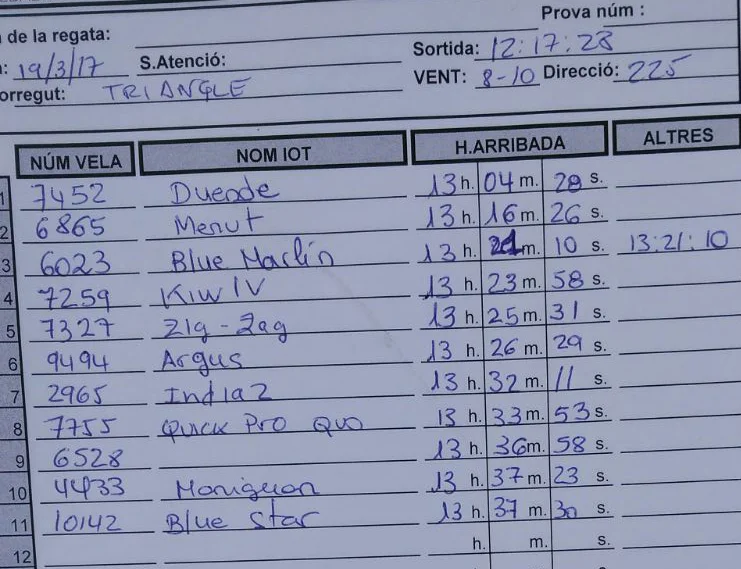 Prova núm :
de la regata:
19/3/17 S.Atenció: Sortida: 12:17:28
orregut: TRIANGLE VENT: 8-10 Direcció: 225
NÚM VELA NOM IOT H.ARRIBADA ALTRES
1 7452 Duende 13 h. 04 m. 28 s.
2 6865 Menut 13 h. 16 m. 26 s.
3 6023 Blue Marlín 13 h. 21 m. 10 s. 13:21:10
4 7259 Kiw IV 13 h. 23 m. 58 s.
5 7327 Zig-Zag 13 h. 25 m. 31 s.
6 9494 Argus 13 h. 26 m. 29 s.
7 2965 India 2 13 h. 32 m. 11 s.
8 7755 Quick Pro Quo 13 h. 33 m. 53 s.
9 6528 13 h. 36 m. 58 s.
10 4433 13 h. 37 m. 23 s.
11 10142 Blue Star 13 h. 37 m. 30 s.
12 h. m. s.